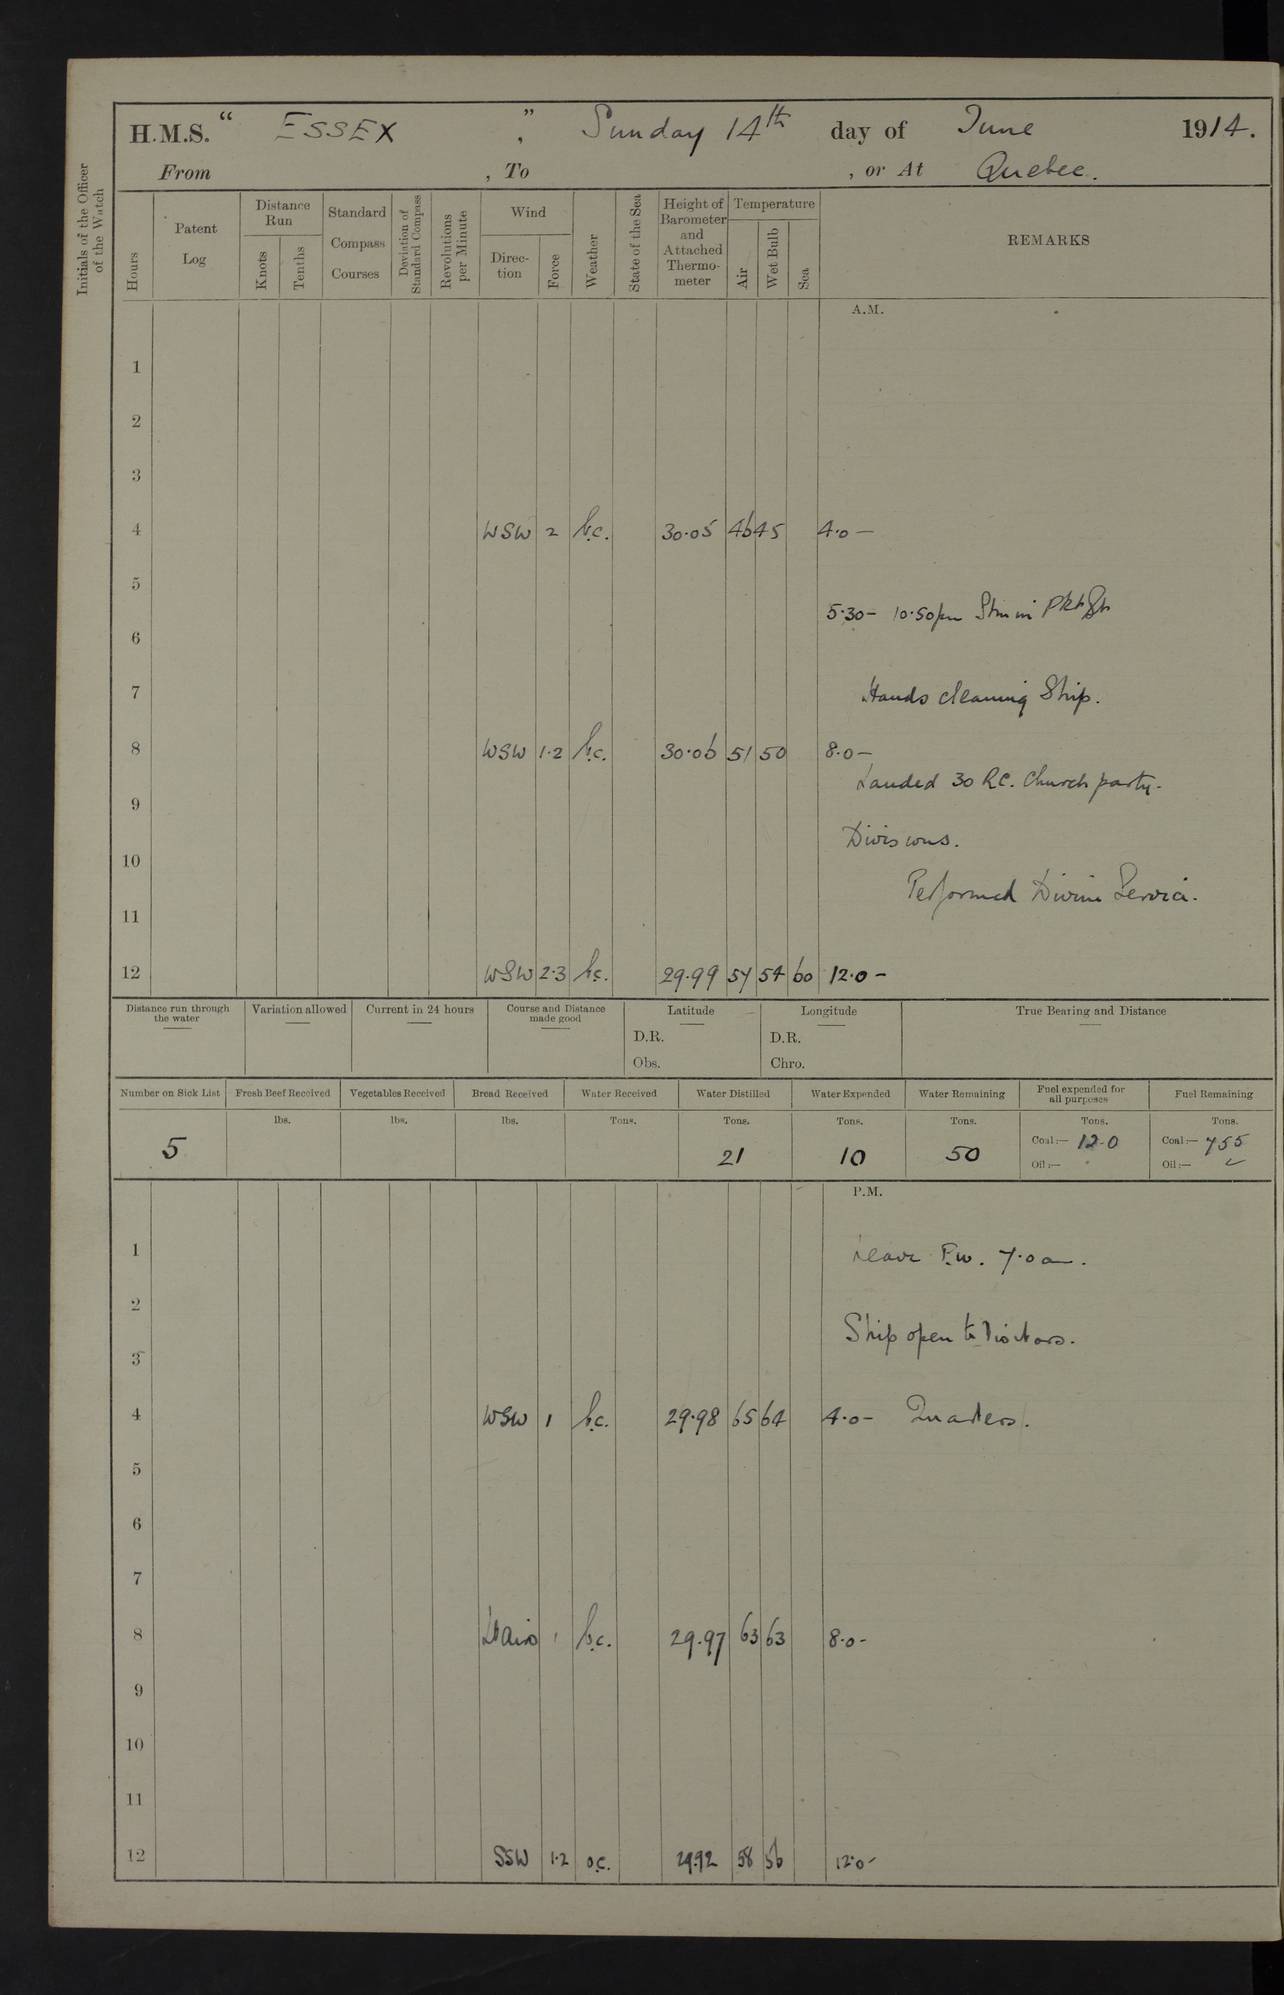 H.M.S. "ESSEX", Sunday 14th day of June 1914.
From , To , or At Quebec.
Initials of the Officer of the Watch
Hours
Patent Log
Distance Run
Knots
Tenths
Standard Compass Courses
Deviation of Standard Compass
Revolutions per Minute
Wind
Direction
Force
Weather
State of the Sea
Height of Barometer and Attached Thermometer
Temperature
Air
Wet Bulb
Sea
REMARKS
A.M.
1
2
3
4 WSW 2 b.c. 30.05 46 45 4.0 —
5
5.30 — 10.50pm
6
7 Hands cleaning Ship.
8 WSW 1.2 b.c. 30.06 51 50 8.0 —
Landed 30 R.C. Church party.
9
Divisions.
10
Performed Divine Service.
11
12 WSW 2.3 b.c. 29.99 57 54 60 12.0 —
Distance run through the water
Variation allowed
Current in 24 hours
Course and Distance made good
Latitude
D.R.
Obs.
Longitude
D.R.
Chro.
True Bearing and Distance
Number on Sick List
5
Fresh Beef Received
lbs.
Vegetables Received
lbs.
Bread Received
lbs.
Water Received
Tons.
Water Distilled
Tons.
21
Water Expended
Tons.
10
Water Remaining
Tons.
50
Fuel expended for all purposes
Tons.
Coal:— 12.0
Oil:—
Fuel Remaining
Tons.
Coal:— 755
Oil:—
P.M.
1 Leave F.W. 7.0am.
2
Ship open to Visitors.
3
4 WSW 1 b.c. 29.98 65 64 4.0 — Quarters.
5
6
7
8 1 b.c. 29.97 63 63 8.0 -
9
10
11
12 SSW 1.2 o.c. 29.92 58 56 12.0 -